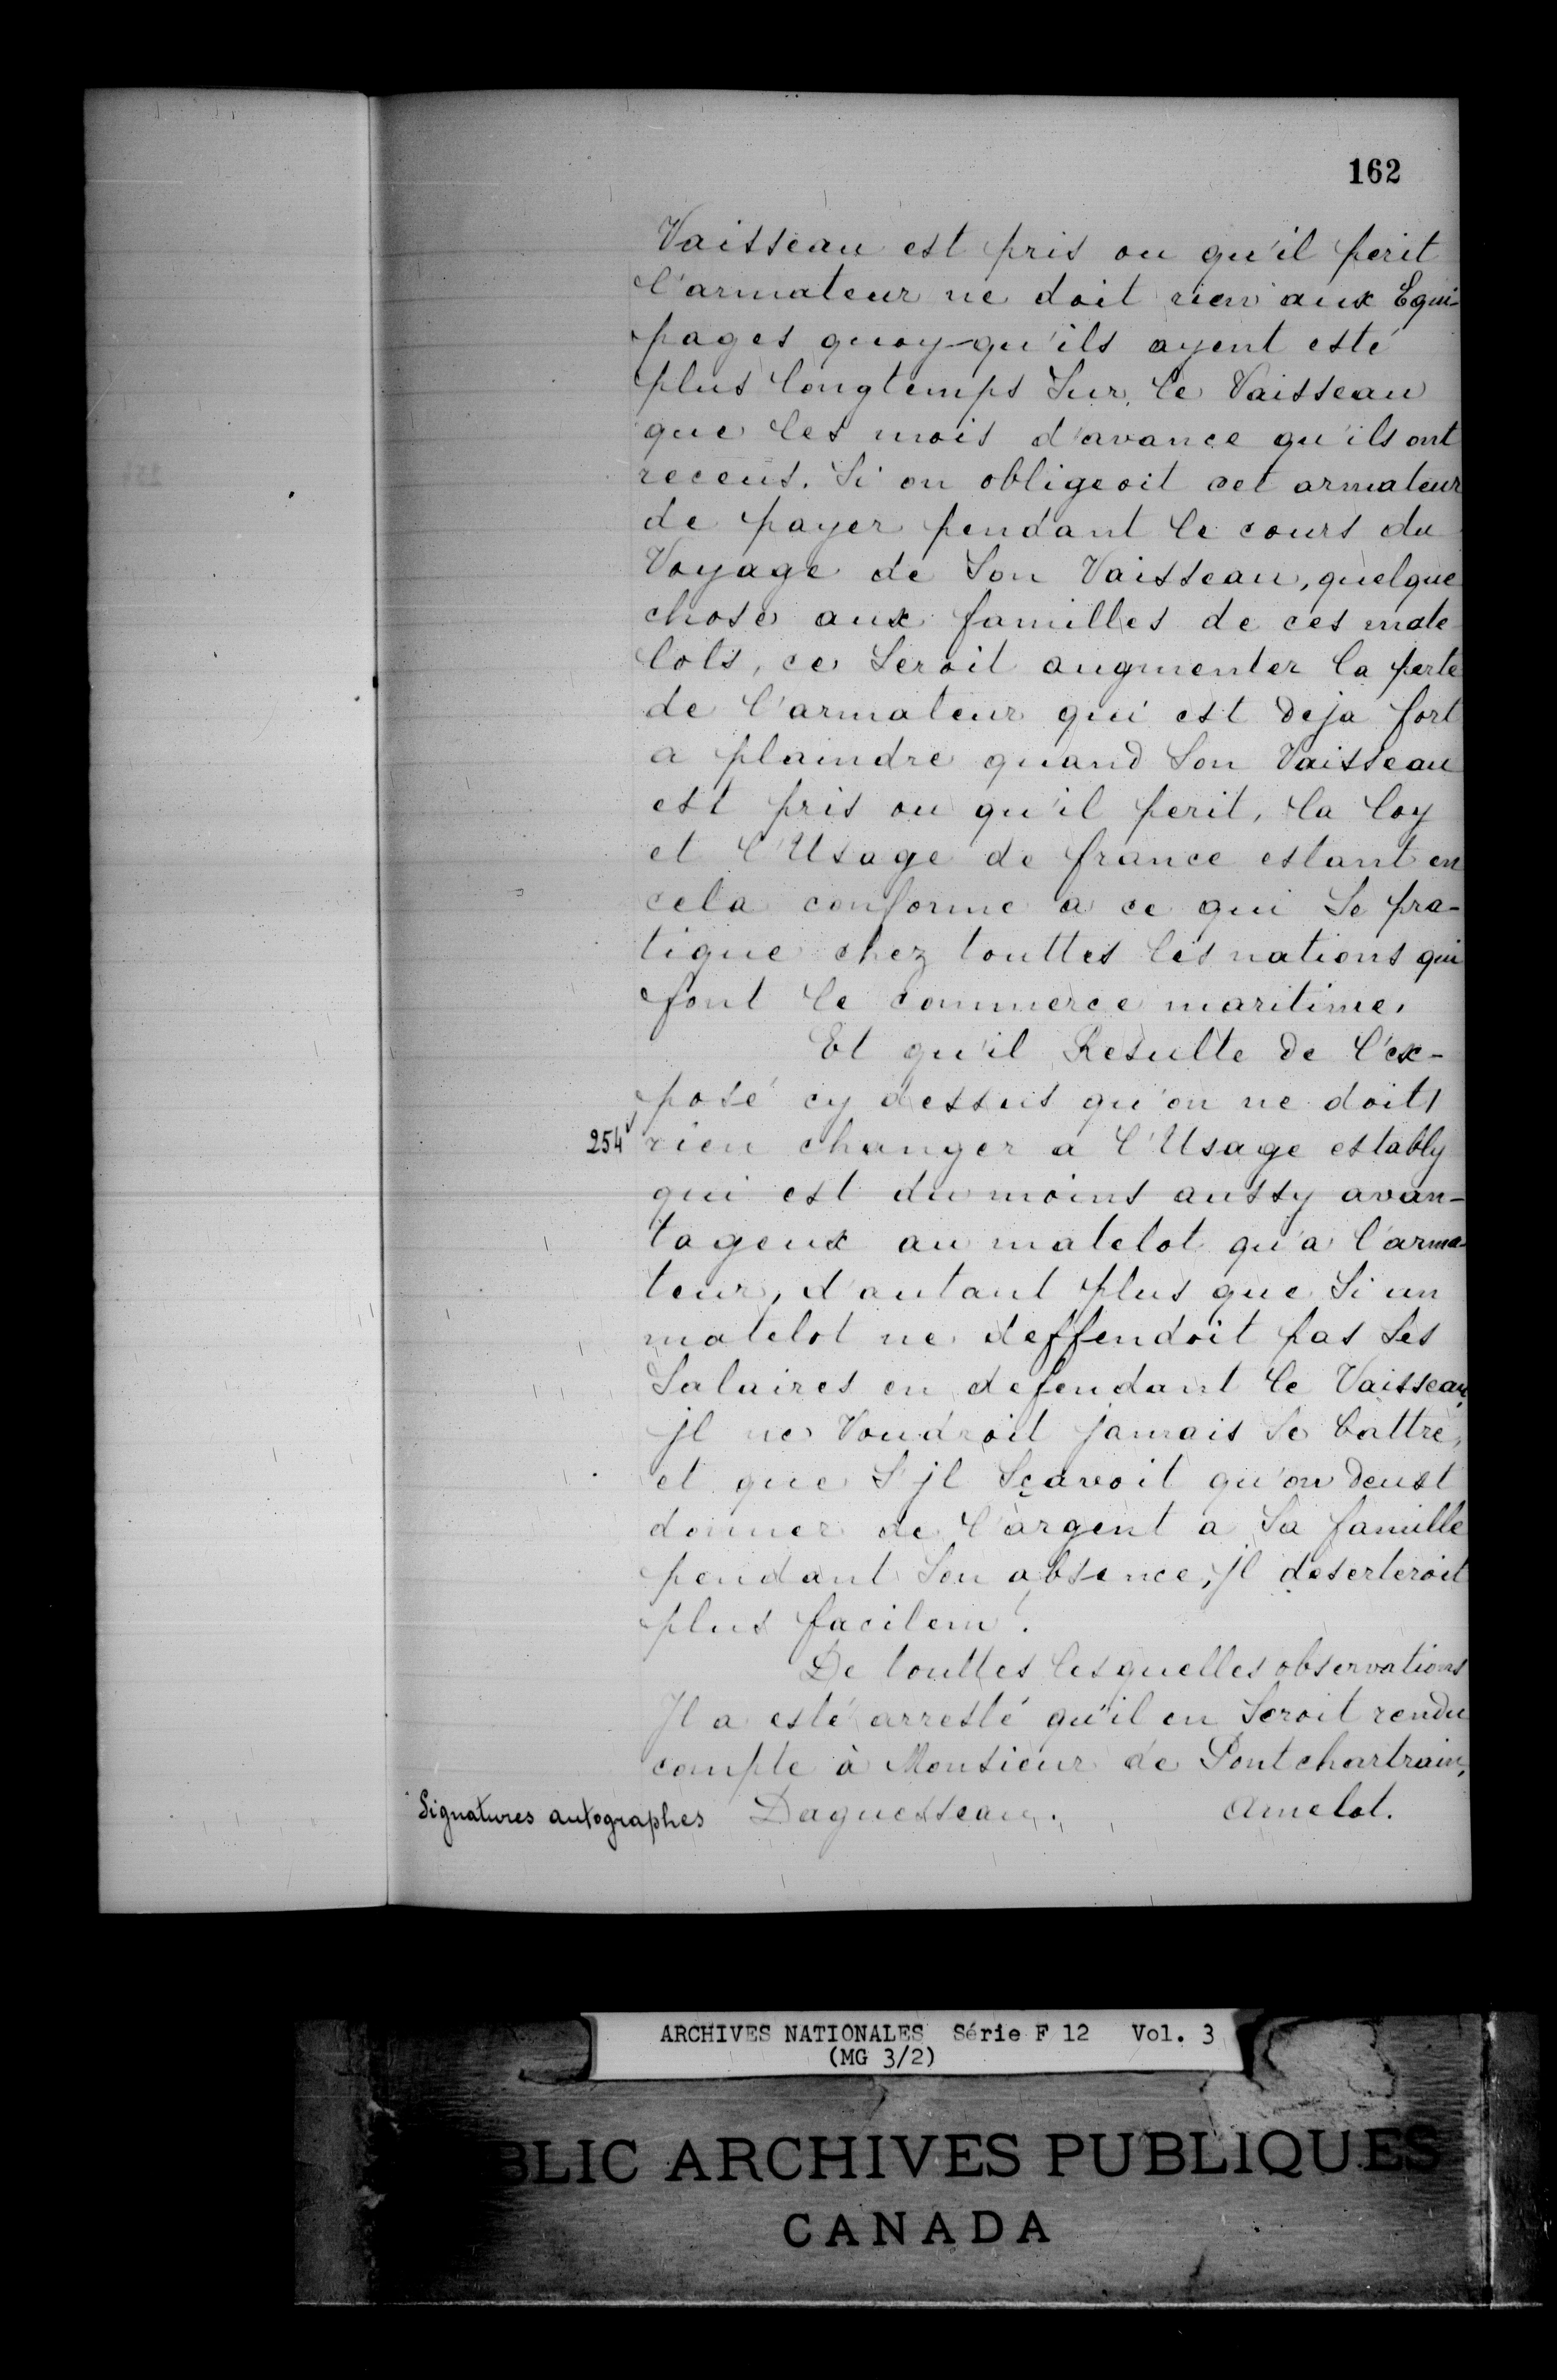 162
Vaisseau est pris ou qu'il perit
l'armateur ne doit rien aux Equi-
pages quoy-qu'ils ayent esté
plus longtemps Sur le Vaisseau
que les mois d'avance qu'ils ont
receus. Si on obligeoit cet armateur
de payer pendant le cours du
Voyage de Son Vaisseau, quelque
chose aux familles de ces mate
lots, ce Seroit augmenter la perte
de l'armateur qui est deja fort
a plaindre quand Son Vaisseau
est pris ou qu'il perit, la loy
et l'Usage de france estant en
cela conforme a ce qui Se pra-
tique chez touttes les nations qui
font le commerce maritime.
Et qu'il Resulte de l'ex-
posé cy dessus qu'on ne doit
254 rien changer a l'Usage estably
qui est du moins aussy avan-
tageux au matelot qu'a l'arma-
teur, d'autant plus que Si un
matelot ne deffendoit pas Ses
Salaires en defendant le Vaisseau,
jl ne Voudroit jamais Se battre,
et que S'jl Sçavoit qu'on deust
donner de l'argent a Sa famille
pendant Son absence, jl deserteroit
plus facilemt.
De touttes lesquelles observations
Jl a esté arresté qu'il en Seroit rendu
compte à Monsieur de Pontchartrain,
Signatures autographes Daguesseau. Amelot.
ARCHIVES NATIONALES Série F 12 Vol. 3
(MG 3/2)
BLIC ARCHIVES PUBLIQUES
CANADA